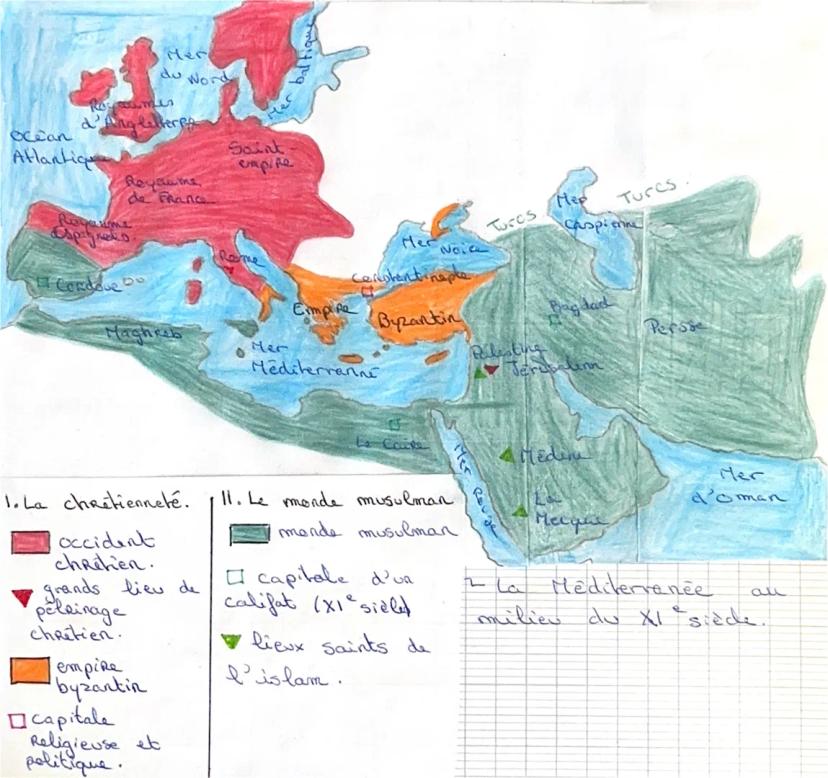 Mer
du Nord
Mer baltique
Royaumes
d'Angleterre
Océan
Atlantique
Saint-
empire
Royaume
de France
Royaume
Espagnols
Cordoue
Rome
Mer Noire
Turcs
Mer
Caspienne
Turcs.
Constantinople
Empire
Byzantin
Bagdad
Perse
Maghreb
Mer
Méditerranné
Palestine
Jérusalem
Le Caire
Mer Rouge
Médine
La
Mecque
Mer
d'Oman
I. La chrétienneté.
occident
chrétien.
grands lieu de
pèleinage
chrétien.
empire
byzantin
capitale
religieuse et
politique.
II. Le monde musulman
monde musulman
capitale d'un
califat (XIe sièle)
lieux saints de
l'islam.
La Méditerranée au
milieu du XIe siècle.